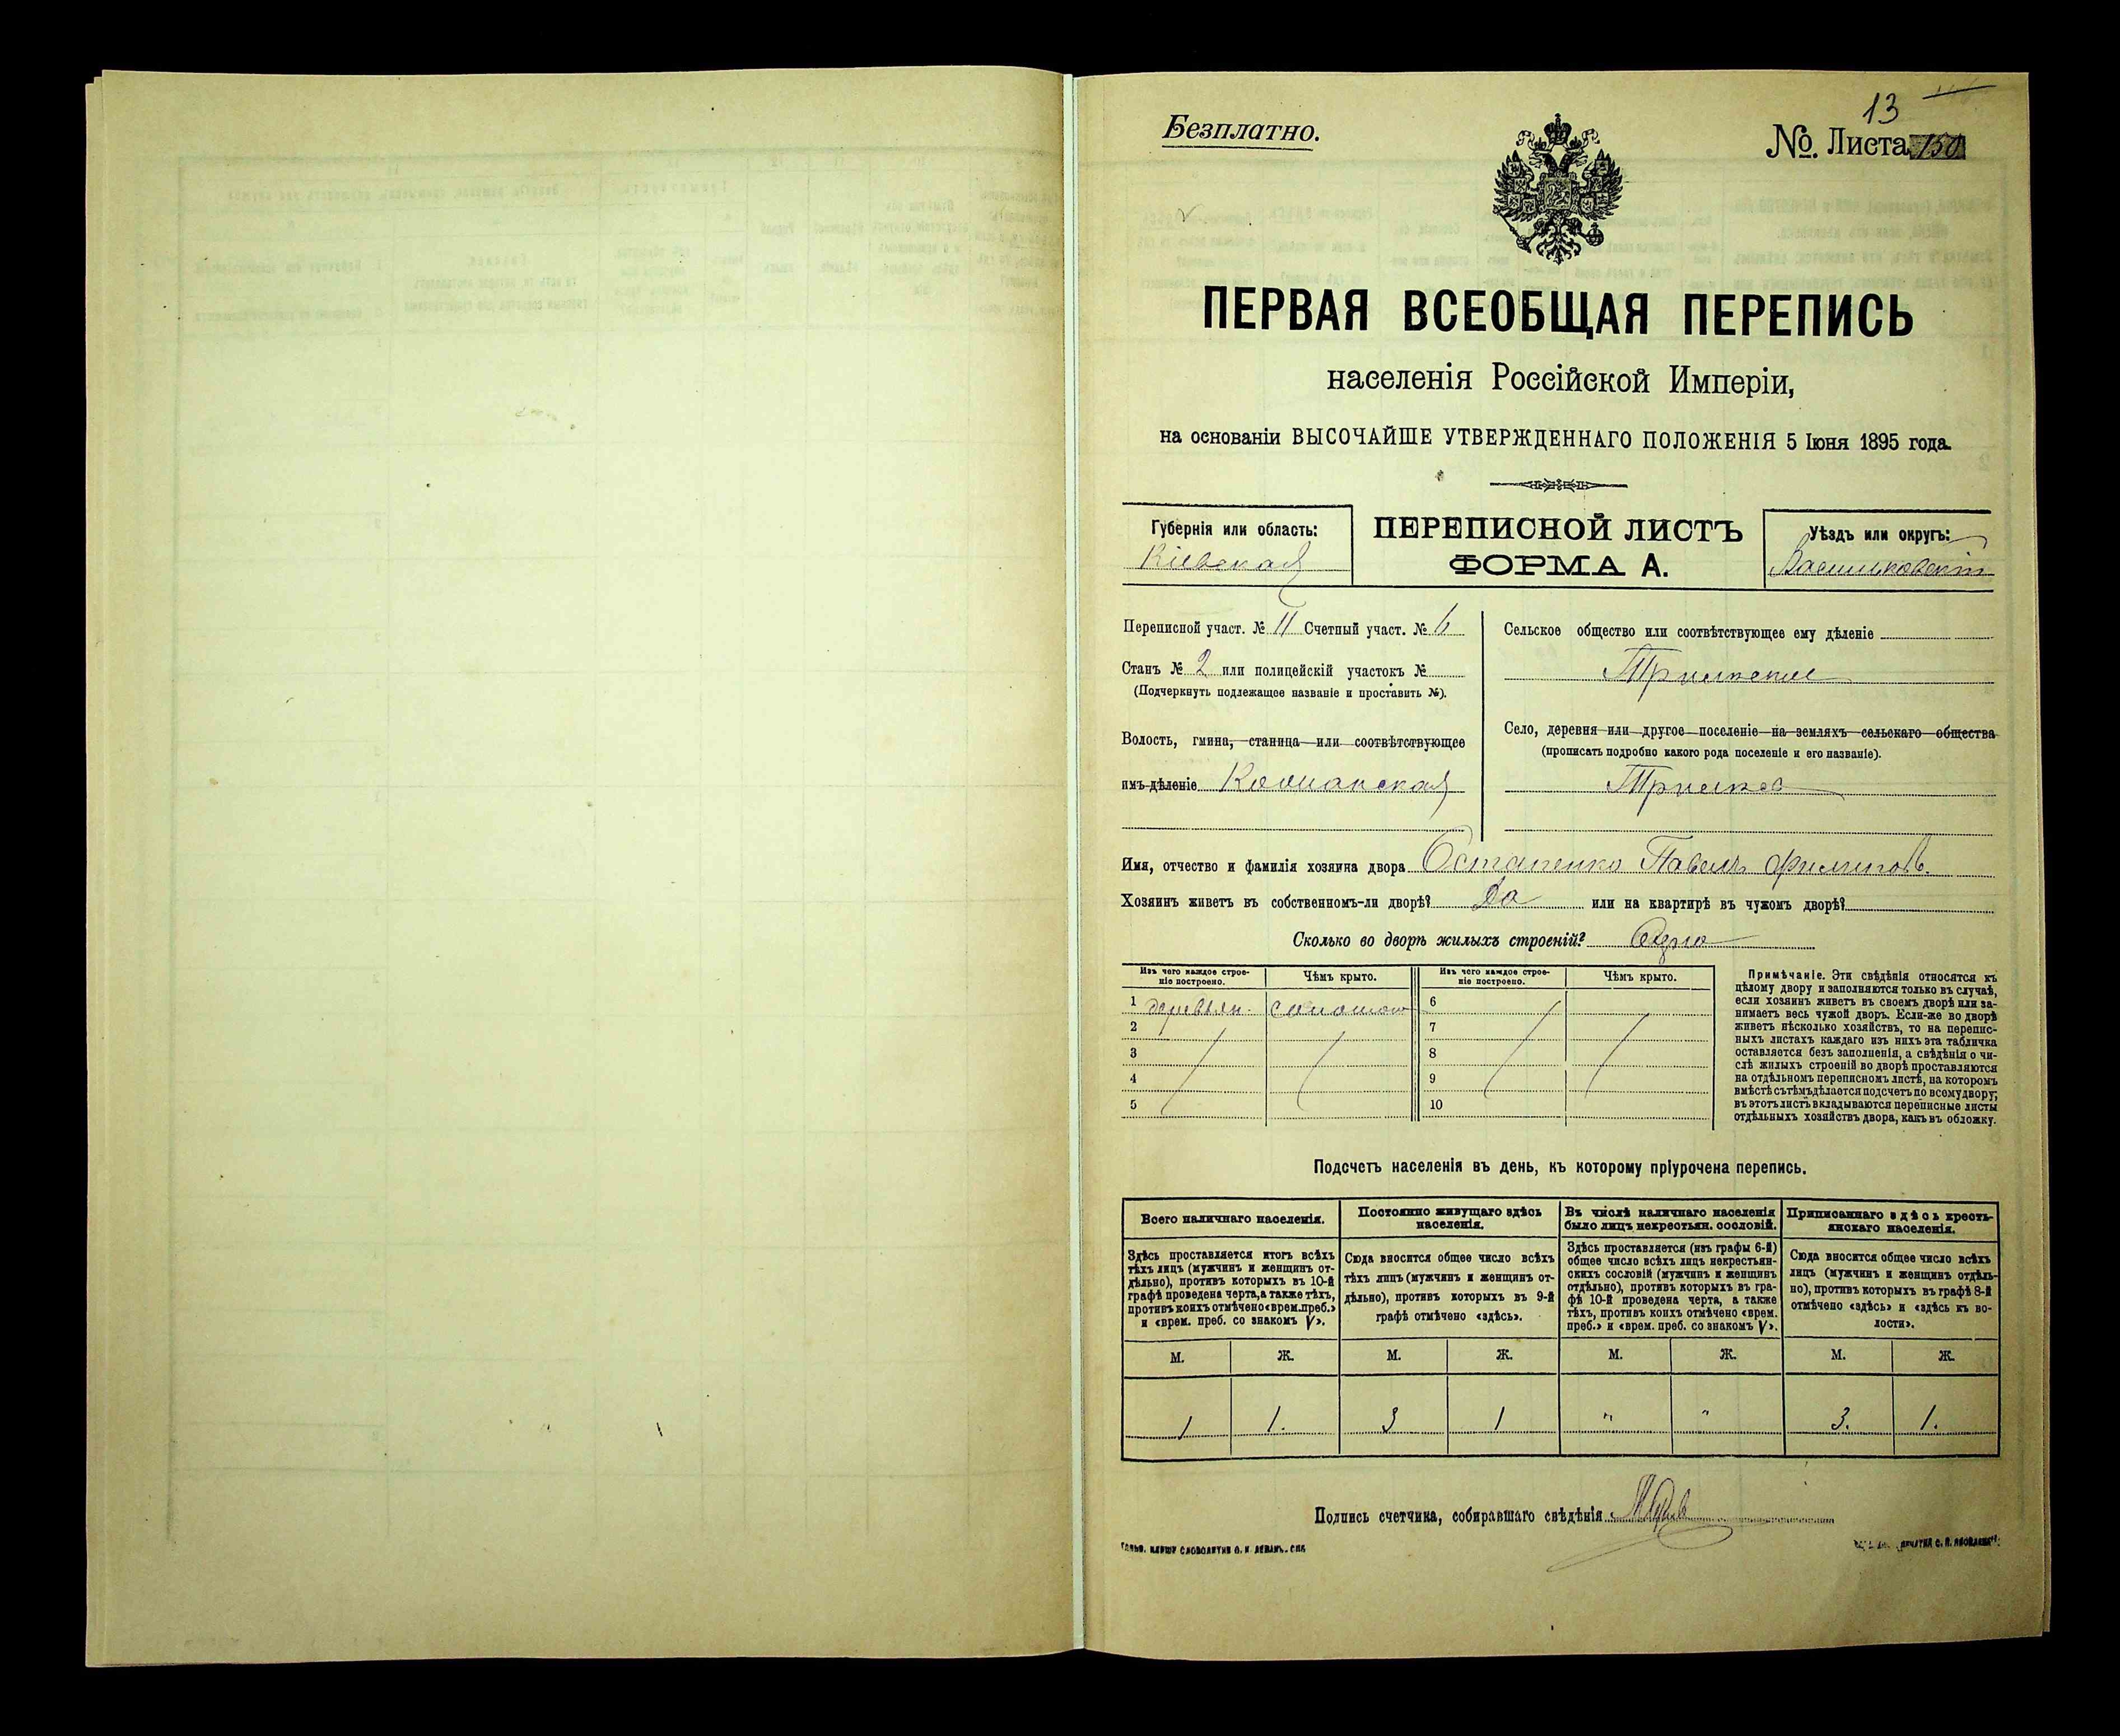 13
Безплатно.
№. Листа 150
ПЕРВАЯ ВСЕОБЩАЯ ПЕРЕПИСЬ
населенія Россійской Имперіи,
на основаніи ВЫСОЧАЙШЕ УТВЕРЖДЕННАГО ПОЛОЖЕНІЯ 5 Іюня 1895 года.
Губернія или область:
Кіевская
ПЕРЕПИСНОЙ ЛИСТЪ
ФОРМА А.
Уѣздъ или округъ:
Васильковскій
Переписной участ. № 11 Счетный участ. № 6
Станъ № 2 или полицейскій участокъ №
(Подчеркнуть подлежащее названіе и проставить №).
Волость, гмина, станица или соотвѣтствующее
имъ дѣленіе Кошанская
Сельское общество или соотвѣтствующее ему дѣленіе
Село, деревня или другое поселеніе на земляхъ сельскаго общества
(прописать подробно какого рода поселеніе и его названіе).
Имя, отчество и фамилія хозяина двора Остапенко Павелъ Филиповъ
Хозяинъ живетъ въ собственномъ-ли дворѣ? Да или на квартирѣ въ чужомъ дворѣ?
Сколько во дворѣ жилыхъ строеній? Одно
Изъ чего каждое строе-
ніе построено.
Чѣмъ крыто.
Изъ чего каждое строе-
ніе построено.
Чѣмъ крыто.
1 деревян. соломою 6
2 7
3 8
4 9
5 10
Примѣчаніе. Эти свѣдѣнія относятся къ
цѣлому двору и заполняются только въ случаѣ,
если хозяинъ живетъ въ своемъ дворѣ или за-
нимаетъ весь чужой дворъ. Если-же во дворѣ
живетъ нѣсколько хозяйствъ, то на перепис-
ныхъ листахъ каждаго изъ нихъ эта табличка
оставляется безъ заполненія, а свѣдѣнія о чи-
слѣ жилыхъ строеній во дворѣ проставляются
на отдѣльномъ переписномъ листѣ, на которомъ
вмѣстѣ съ тѣмъ дѣлается подсчетъ по всему двору;
въ этотъ листъ вкладываются переписные листы
отдѣльныхъ хозяйствъ двора, какъ въ обложку.
Подсчетъ населенія въ день, къ которому пріурочена перепись.
Всего наличнаго населенія.
Здѣсь проставляется итогъ всѣхъ
тѣхъ лицъ (мужчинъ и женщинъ от-
дѣльно), противъ которыхъ въ 10-й
графѣ проведена черта, а также тѣхъ,
противъ коихъ отмѣчено «врем. преб.»
и «врем. преб. со знакомъ V».
Постоянно живущаго здѣсь
населенія.
Сюда вносится общее число всѣхъ
тѣхъ лицъ (мужчинъ и женщинъ от-
дѣльно), противъ которыхъ въ 9-й
графѣ отмѣчено «здѣсь».
Въ числѣ наличнаго населенія
было лицъ некрестьян. сословій.
Здѣсь проставляется (изъ графы 6-й)
общее число всѣхъ лицъ некрестьян-
скихъ сословій (мужчинъ и женщинъ
отдѣльно), противъ которыхъ въ гра-
фѣ 10-й проведена черта, а также
тѣхъ, противъ коихъ отмѣчено «врем.
преб.» и «врем. преб. со знакомъ V».
Приписаннаго здѣсь кресть-
янскаго населенія.
Сюда вносится общее число всѣхъ
лицъ (мужчинъ и женщинъ отдѣль-
но), противъ которыхъ въ графѣ 8-й
отмѣчено «здѣсь» и «здѣсь къ во-
лости».
М. Ж. М. Ж. М. Ж. М. Ж.
1 1. 3 1 " " 3. 1.
Подпись счетчика, собиравшаго свѣдѣнія